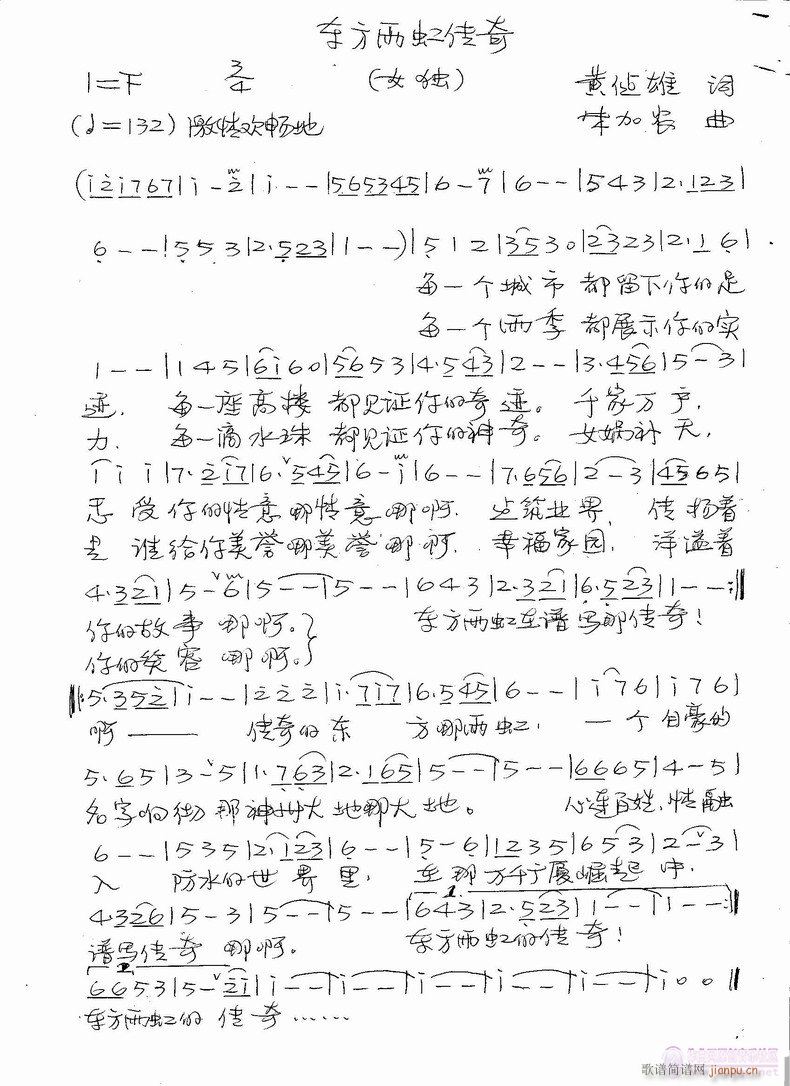 东方雨虹传奇
1=F 3/4 (女独) 黄 雄 词
(♩=132) 激情欢畅地 朱加农 曲
(i 2 i 7 6 7 | i - 2 | i - - | 5 6 5 3 4 5 | 6 - 7 | 6 - - | 5 4 3 | 2· 1 2 3 |
6 - - | 5 5 3 | 2· 5 2 3 | 1 - - ) | 5 1 2 | 3 5 3 0 | 2 3 2 3 | 2· 1 6 |
每一个城市 都留下你的足
每一个雨季 都展示你的实
1 - - | 1 4 5 | 6 i 6 0 | 5 6 5 3 | 4· 5 4 3 | 2 - - | 3· 4 5 6 | 5 - 3 |
迹, 每一座高楼 都见证你的奇迹。 千家万户,
力, 每一滴水珠 都见证你的神奇。 女娲补天,
i i i | 7· 2 i 7 | 6· 5 4 5 | 6 - i | 6 - - | 7· 6 5 6 | 2 - 3 | 4 5 6 5 |
受你的情意哪情意哪啊, 建筑业界, 传扬着
是谁给你美誉哪美誉哪啊, 幸福家园, 洋溢着
4· 3 2 1 | 5 - 6 | 5 - - | 5 - - | 6 4 3 | 2· 3 2 1 | 6· 5 2 3 | 1 - - :||
你的故事哪啊。} 东方雨虹在谱写那传奇!
你的笑容哪啊。}
||: 5· 3 5 2 | i - - | 2 2 2 | i· 7 i 7 | 6· 5 4 5 | 6 - - | i 7 6 | i 7 6 |
啊—— 传奇的东 方哪雨虹, 一个自豪的
5· 6 5 | 3 - 5 | 1· 7 6 3 | 2· 1 6 5 | 5 - - | 5 - - | 6 6 6 5 | 4 - 5 |
名字响彻那神州大地哪大地。 心连百姓,情融
6 - - | 5 3 5 | 2· 1 2 3 | 6 - - | 5 - 6 | 1 2 3 5 | 6 5 3 | 2 - 3 |
入 防水的世界里, 在那万千广厦崛起中,
1.
4· 3 2 6 | 5 - 3 | 5 - - | 5 - - | 6 4 3 | 2· 5 2 3 | 1 - - | 1 - - :||
谱写传奇哪啊。 东方雨虹的传奇!
2.
6 6 5 3 | 5 - 2 i | i - - | i - - | i - - | i - - | i - - | i 0 0 ||
东方雨虹的 传奇……
歌谱简谱网
jianpu.cn